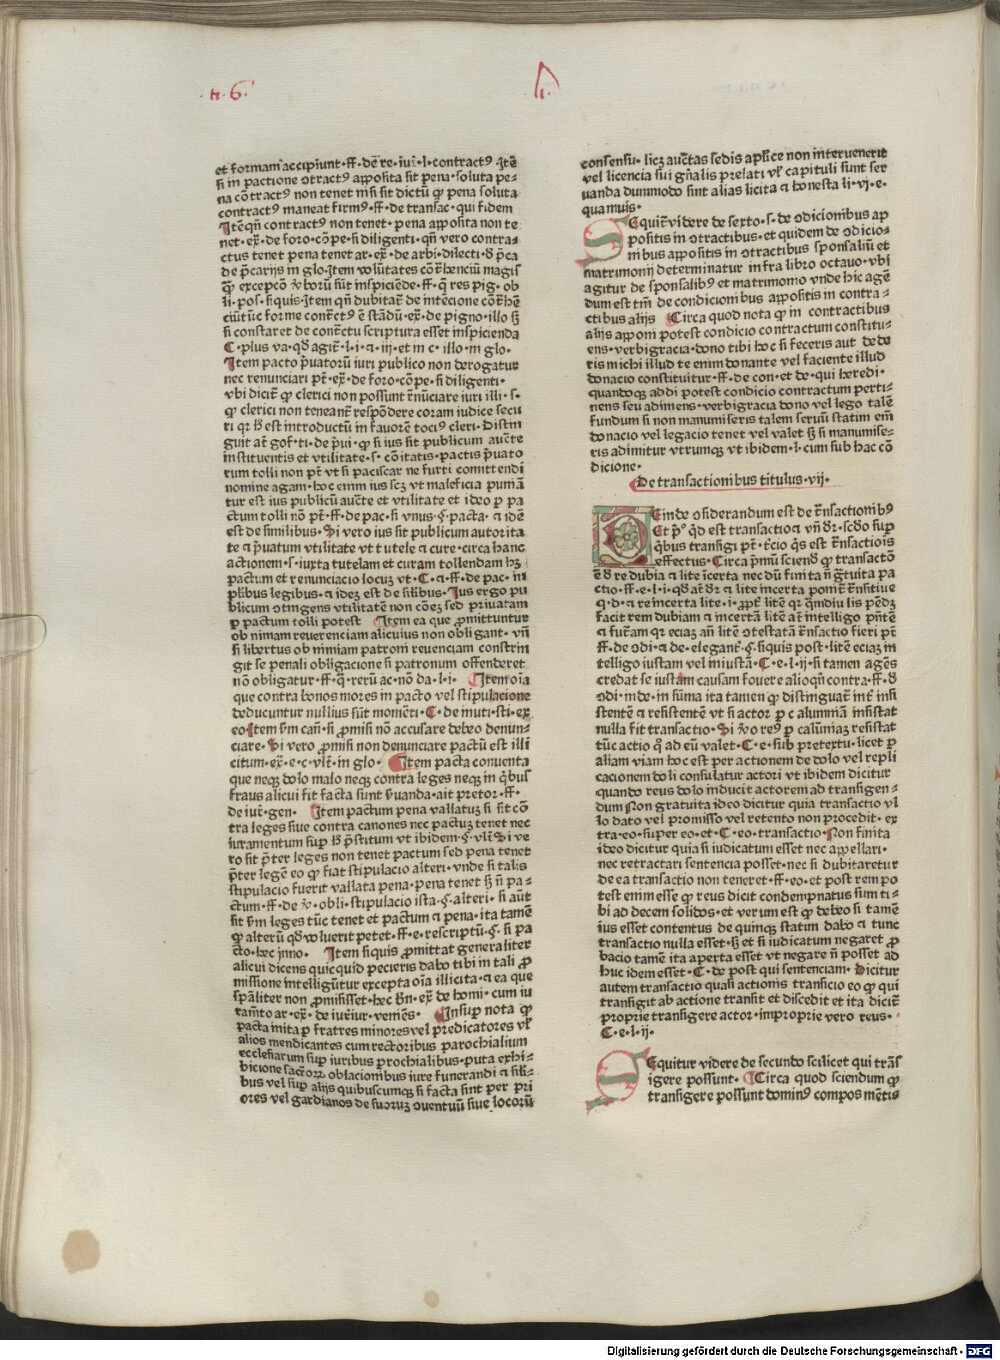 .n.6.
et formam accipiunt·ff·de re·iuť·l·contractꝰ Itē
si in pactione ꝯtractꝰ apposita sit pena·soluta pe-
na cōtractꝰ non tenet nisi sit dictū ꝙ pena soluta
contractꝰ maneat firmꝰ·ff·de transac·qui fidem
Itē qn̄ contractꝰ non tenet·pena apposita non te
net·ex̄·de foro·cōpe·si diligenti·qn̄ vero contra-
ctus tenet pena tenet ar·ex̄·de arbi·dilecti·
de p̄carijs in glo·Item volūtates cōt̄henciū magis
excepcō v̄borū sūt inspiciēde·ff·q̄ res pig·ob
li·pos·si quis·Item qn̄ dubitat̄ de intēcione cōt̄hē
ciū tūc forme cont̄ctꝰ ē stādū·ex̄·de pigno·illo ꝫ
si constaret de cont̄ctu scriptura esset inspicienda
C·plus va·qd̄ agit̄·l·i·⁊ iij·et in c·illo·in glo·
Item pacto p̄uatorū iuri publico non derogatur
nec renunciari pt̄·ex̄·de foro·cōpe·si diligenti·
vbi dicit̄ ꝙ clerici non possunt r̄nūciare iuri illi·s·
ꝙ clerici non teneant̄ respōdere coram iudice secu
ri qr h̄ est introductū in fauorē tociꝰ cleri·Distin
guit at̄ gof·ti·de p̄ui·ꝙ si ius sit publicum aucte
instituentis et vtilitate·s·cōitatis·pactis p̄uato
rum tolli non pt̄ vt si paciscar ne furti comittendi
nomine agam·hoc enim ius scꝫ vt maleficia puniā
tur est ius publicū aucte et vtilitate et ideo p pa
ctum tolli nō pt̄·ff·de pac·si vnus·§·pacta·⁊ idē
est de similibus·Si vero ius sit publicum autorita
te ⁊ p̄uatum vtilitate vt tutele ⁊ cure·circa hanc
actionem·s·iuxta tutelam et curam tollendam hꝫ
pactum et renunciacio locuꝫ vt·C·⁊·ff·de pac·in
plibus legibus·⁊ ideꝫ est de silibus·Ius ergo pu
blicum ꝯtingens vtilitatē non cōeꝫ sed priuatam
p pactum tolli potest Item ea que promittuntur
ob nimam reuerenciam alicuius non obligant·vn̄
si libertus ob nimiam patroni reuenciam constrin
git se penali obligacione si patronum offenderet
nō obligatur·ff·q̄·rerū ac·nō da·l·i· Item oīa
que contra bonos mores in pacto vel stipulacione
deducuntur nullius sūt momēti·C·de inuti·sti·ex
eo Item v̄m can̄·si promisi nō accusare debeo denun-
ciare·Si vero promisi non denunciare pactū est illi
citum·ex̄·e·c·vlt̄·in glo· Item pacta conuenta
que neqꝫ dolo malo neqꝫ contra leges neqꝫ in qͥbus
fraus alicui fit facta sunt ẜuanda·ait pretor·ff·
de iur̄·gen· Item pactum pena vallatuꝫ si sit cō
tra leges siue contra canones nec pactuꝫ tenet nec
iuramentum sup h̄ p̄stitum vt ibidem·§·vlt̄ Si ve
ro sit p̄ter leges non tenet pactum sed pena tenet
p̄ter legē eo ꝙ fiat stipulacio alteri·vnde si talis
stipulacio fuerit vallata pena·pena tenet ꝫ n̄ pa-
ctum·ff·de v̄·obli·stipulacio ista·§·alteri·si aūt
sit v̄m leges tūc tenet et pactum ⁊ pena·ita tamē
ꝙ alterū qd̄ voluerit petet·ff·e·rescriptū·§·si pa
cto·hec inno· Item si quis promittat generaliter
alicui dicens quicquid pecieris dabo tibi in tali pro
missione intelligūtur excepta oīa illicita·⁊ ea que
spāliter non promisisset·hec Bn̄·ex̄ de homi·cum iu
ramto ar·ex̄·de iureiur·veniēs· Insup nota ꝙ
pacta inita p fratres minores vel predicatores vl̄
alios mendicantes cum rectoribus parochialium
ecclesiarum sup iuribus prochialibus·puta exhi-
bicione sacroꝝ oblacionibus iure funerandi ⁊ sili-
bus vel sup alijs quibuscumqꝫ si facta sint per pri
ores vel gardianos de suoruꝫ ꝯuentuū siue locorū
consensu·licꝫ auctas sedis aplice non interuenerit
vel licencia sui gn̄alis prelati vl̄ capituli sunt ser
uanda dummodo sint alias licita ⁊ honesta li·vj·e·
quamuis·
Sequit̄ videre de sexto·s·de ꝯdicionibus ap
positis in ꝯtractibus·et quidem de ꝯdicio-
nibus appositis in ꝯtractibus sponsaliū et
matrimonij determinatur infra libro octauo·vbi
agitur de sponsalibꝰ et matrimonio vnde hic agē
dum est tm̄ de condicionibus appositis in contra-
ctibus alijs Circa quod nota ꝙ in contractibus
alijs apponi potest condicio contractum constitu-
ens·verbigracia·dono tibi hoc si feceris aut dedo
ris michi illud te enim donante vel faciente illud
donacio constituitur·ff·de con·et de·qui heredi·
quandoqꝫ addi potest condicio contractum perti-
nens seu adimens·verbigracia dono vel lego talē
fundum si non manumiseris talem seruū statim em̄
donacio vel legacio tenet vel valet ꝫ si manumise-
ris adimitur vtrumqꝫ vt ibidem·l·cum sub hac cō
dicione·
De transactionibus titulus·vij·
Deinde ꝯsiderandum est de t̄nsactionibꝰ
Et pͦ qd̄ est transactio ⁊ vn̄ dr̄·scdo sup
qͥbus transigi pt̄·t̄cio qͥs est t̄nsactiois
effectus·Circa p̄mū sciend ꝙ transactō
ē d re dubia ⁊ lite īcerta nec dū finita n̄ gtuita pa
ctio·ff·e·l·i·qd̄ at̄ dr̄ ⁊ lite incerta ponit̄ t̄nsitiue
q·d·⁊ re incerta lite·i·propt̄ litē qr qͣmdiu lis pēdꝫ
facit rem dubiam ⁊ incertā litē at̄ intelligo p̄ntē
⁊ fut̄am qr eciaꝫ an̄ litē ꝯtestatā t̄nsactio fieri pt̄
ff·de ꝯdi·⁊ de·elegant̄·§·si quis post·litē eciaꝫ in
telligo iustam vel iniustā·C·e·l·ij·si tamen agēs
credat se iustam causam fouere alioqͥn contra·ff·d
ꝯdi·inde·in sūma ita tamen ꝙ distinguat̄ int̄ insi
stentē ⁊ resistentē vt si actor p calumniā insistat
nulla fit transactio·Si v̄o reꝰ p calūniaꝫ resistat
tūc actio qͦ ad eū valet·C·e·sub pretextu·licet p
aliam viam hoc est per actionem de dolo vel repli
cacionem doli consulatur actori vt ibidem dicitur
quando reus dolo inducit actorem ad transigen-
dum Non gratuita ideo dicitur quia transactio vl
lo dato vel promisso vel retento non procedit·ex
tra·eo·super eo·et·C·eo·transactio·Non finita
ideo dicitur quia si iudicatum esset nec appellari·
nec retractari sentencia posset·nec si dubitaretur
de ea transactio non teneret·ff·eo·et post rem po
test enim esse ꝙ reus dicit condempnatus sum ti-
bi ad decem solidos·et verum est ꝙ debeo si tamē
ius esset contentus de quinqꝫ statim dabo ⁊ tunc
transactio nulla esset·ꝫ et si iudicatum negaret pro
bacio tamē ita aperta esset vt negare n̄ posset ad
huc idem esset·C·de post qui sentenciam·Dicitur
autem transactio quasi actionis transicio eo ꝙ qui
transigit ab actione transit et discedit et ita dicit̄
proprie transigere actor·improprie vero reus·
C·e·l·ij·
Sequitur videre de secundo scilicet qui trās
igere possunt· Circa quod sciendum ꝙ
transigere possunt dominꝰ compos mētis
Digitalisierung gefördert durch die Deutsche Forschungsgemeinschaft - DFG